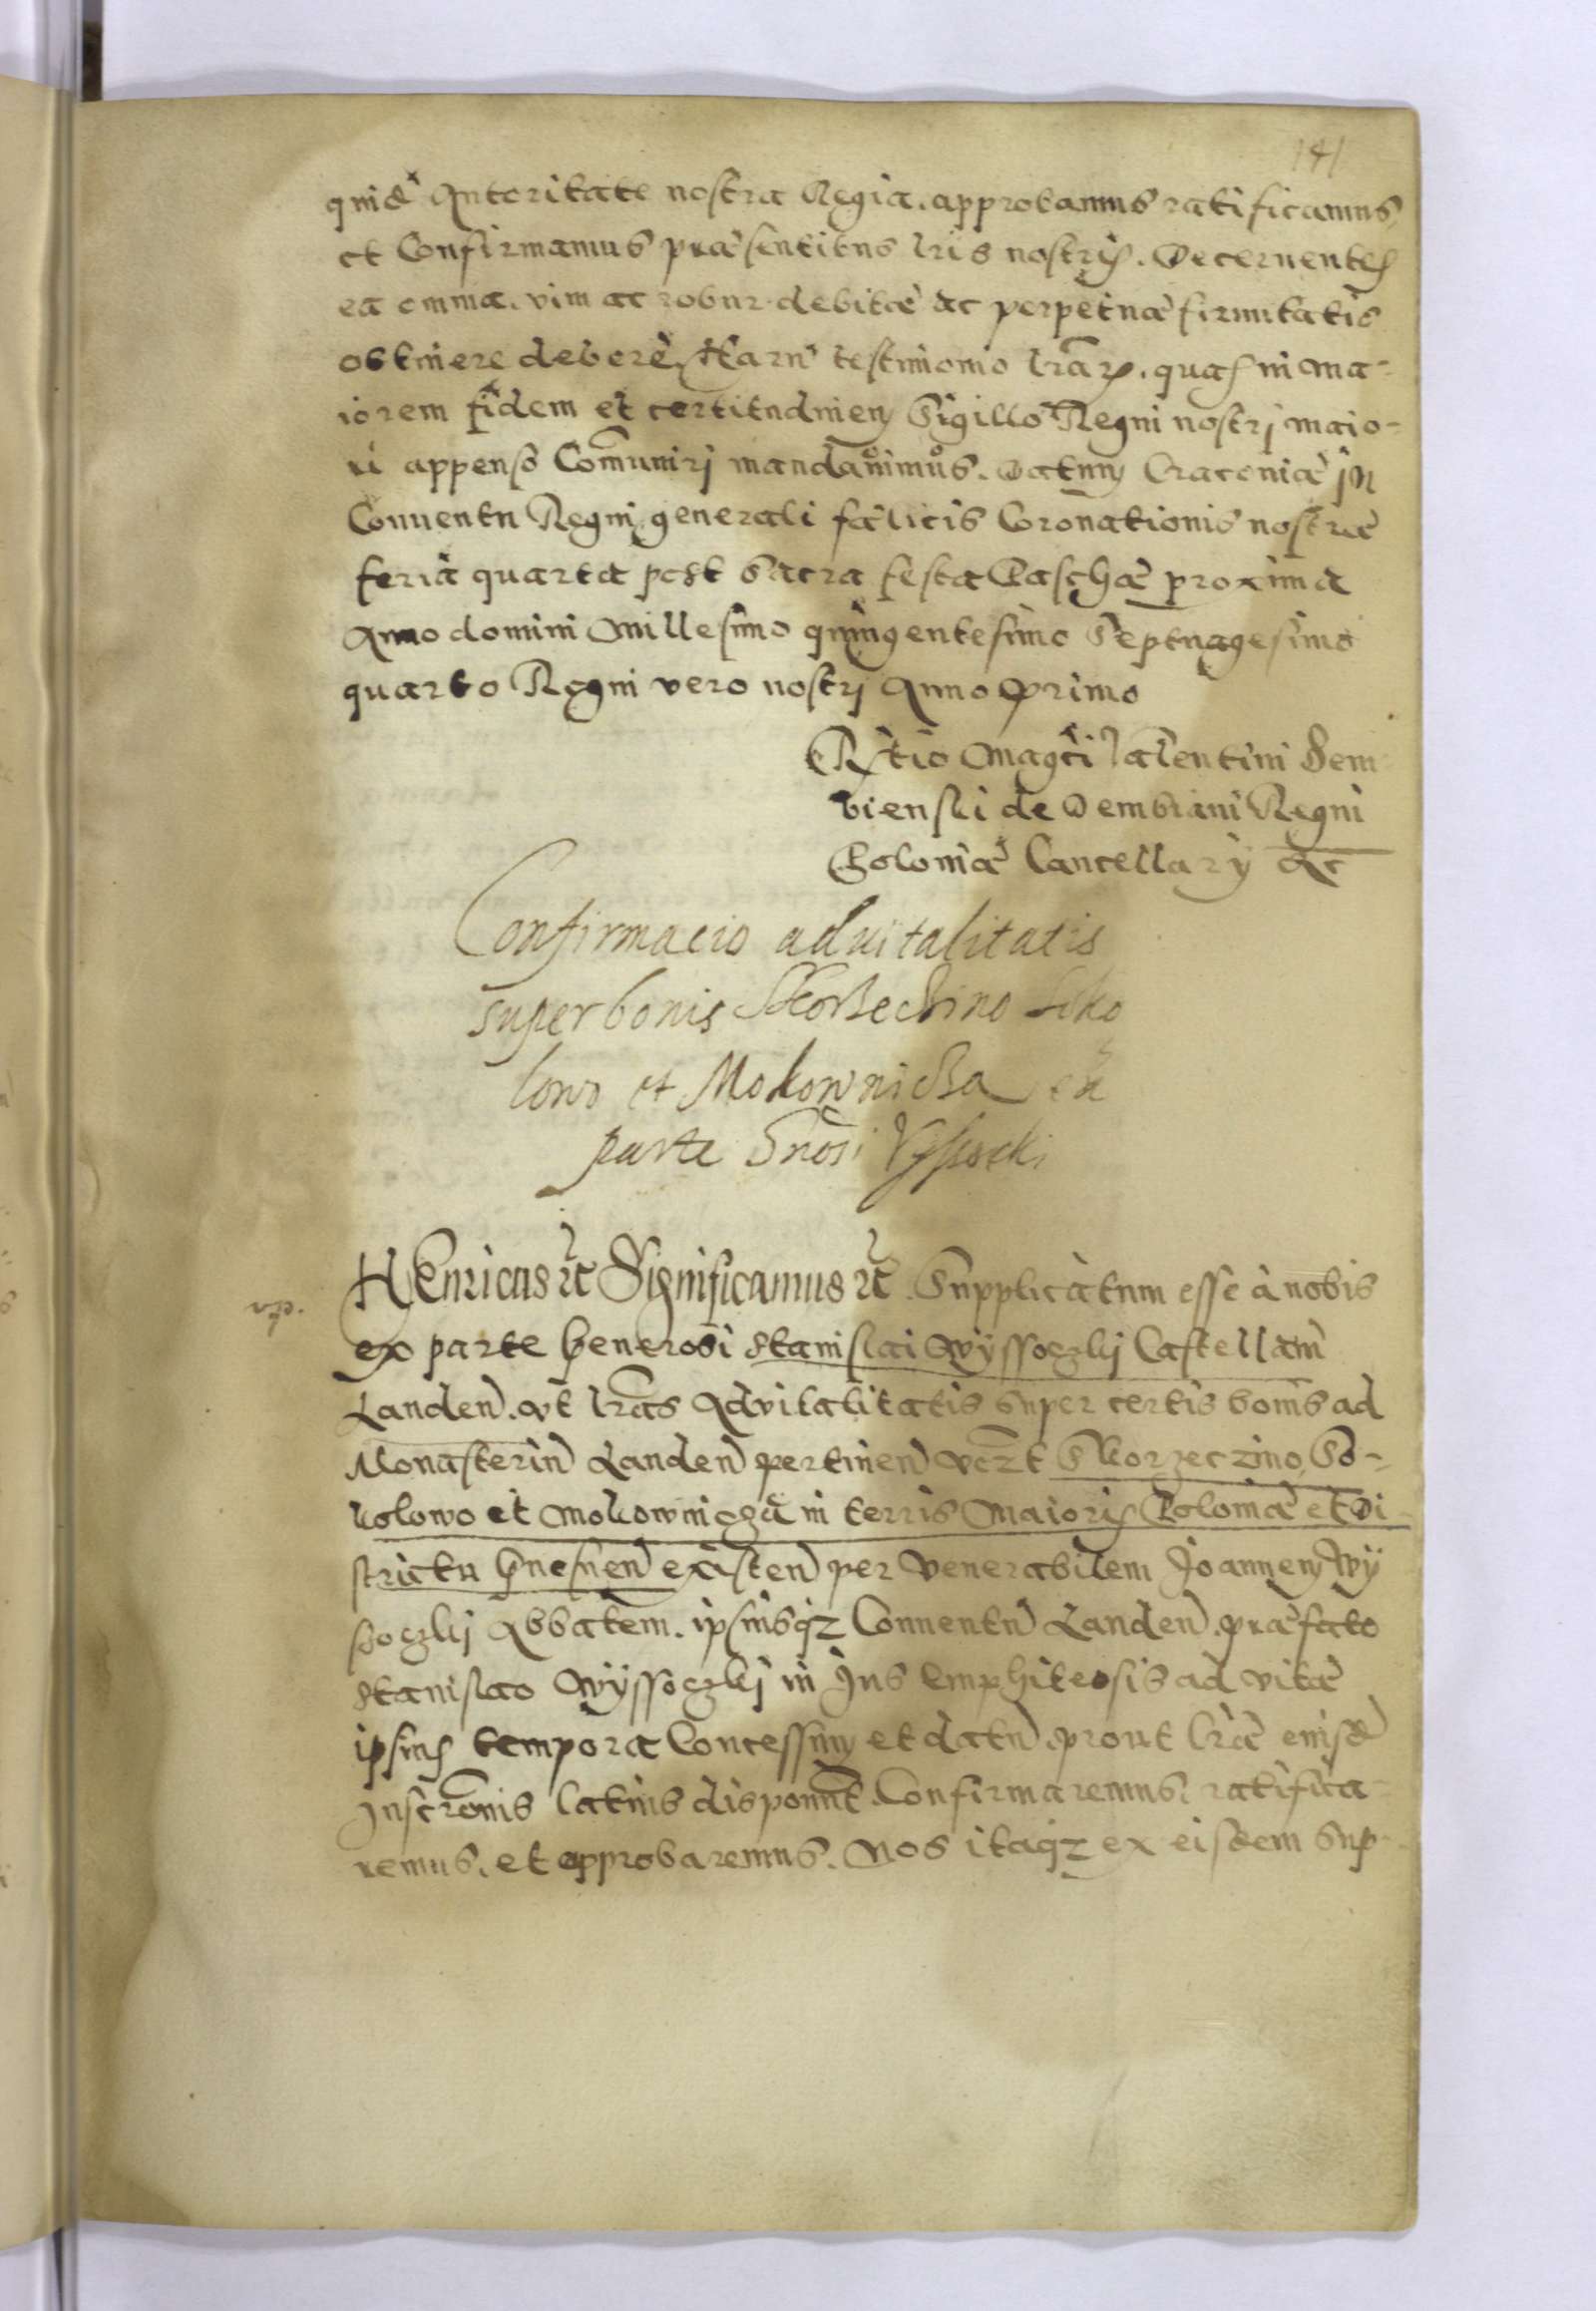 141
quidē Autoritate nostra Regia. approbamus ratificamus,
et Confirmamus præsentibus lris nostris. Decernentes
ea omnia. vim ac robur debitæ ac perpetuæ firmitatis
obtinere debere, Harū testimonio lrarꝝ. quas in ma-
iorem fidem et certitudinem Sigillo Regni nostri maio-
ri appenso Com̄uniri mandauimus. Datum Cracouiæ in
Conuentu Regni generali fælicis Coronationis nostræ
feria quarta post sacra festa Paschæ proxima
Anno domini Millesimo quingentesimo Septuagesimo
quarto Regni vero nostri Anno Primo
Rṫio Magci Valentini Dem-
bienski de Dembiani Regni
Poloniæ Cancellarÿ &c
Confirmacio aduitalitatis
super bonis Skorzeczino Soko
lowo et Mokownicza ex
parte Gnosi Vyssocki
HEnricus &c Significamus &c. Supplicatum esse à nobis
ex parte Generosi Stanislai Wyssoczkij Castellani
Landen̄. vt lras Aduitalitatis super certis bonis ad
Monasteriū Landen̄ pertinen̄ vczt Skorzeczino, So-
kolowo et Mokownicza in terris Maioris Poloniæ et Di-
strictu Gnesnen̄ existen̄ per Venerabilem Joannem Wÿ
soczkij Abbatem. ipsiusqz Conuentū Landen̄. præfato
Stanislao Wÿssoczkij in Jus Emphiteosis ad vitæ
ipsius tempora Concessum et datū prout lræ eiusdē
Inscronis latius disponunt. Confirmaremus. ratifica-
remus. et approbaremus. Nos itaqz ex eisdem sup-